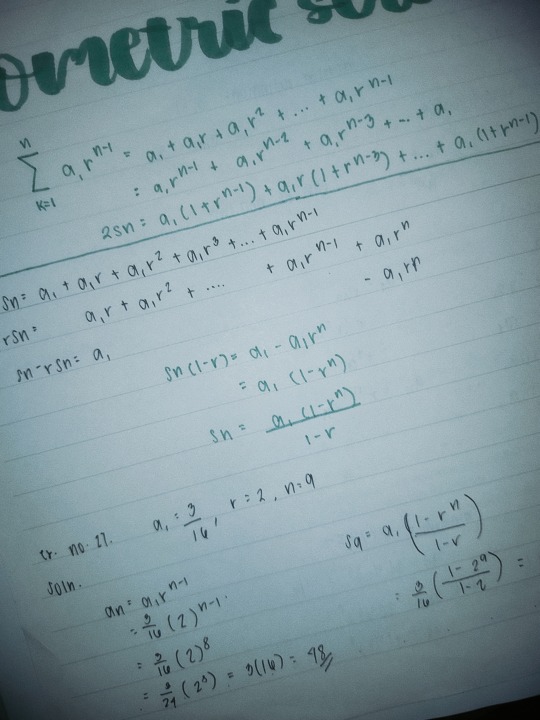 ometric
n
∑ a₁rⁿ⁻¹ = a₁ + a₁r + a₁r² + ... + a₁rⁿ⁻¹
k=1
: a₁rⁿ⁻¹ + a₁rⁿ⁻² + a₁rⁿ⁻³ + ... + a₁
2sn = a₁(1+rⁿ⁻¹) + a₁r(1+rⁿ⁻³) + ... + a₁(1+rⁿ⁻¹)
sn = a₁ + a₁r + a₁r² + a₁r³ + ... + a₁rⁿ⁻¹
rsn = a₁r + a₁r² + .... + a₁rⁿ⁻¹ + a₁rⁿ
sn-rsn = a₁ - a₁rⁿ
sn(1-r) = a₁ - a₁rⁿ
= a₁ (1-rⁿ)
sn = a₁ (1-rⁿ) / 1-r
no. 27. a₁ = 3/16, r = 2, n = 9
soln.
an = a₁rⁿ⁻¹
= 3/16 (2)ⁿ⁻¹
= 3/16 (2)⁸
= 3/2⁴ (2⁸) = 3(16) = 48
s9 = a₁ (1-rⁿ / 1-r)
= 3/16 (1-2⁹ / 1-2) =